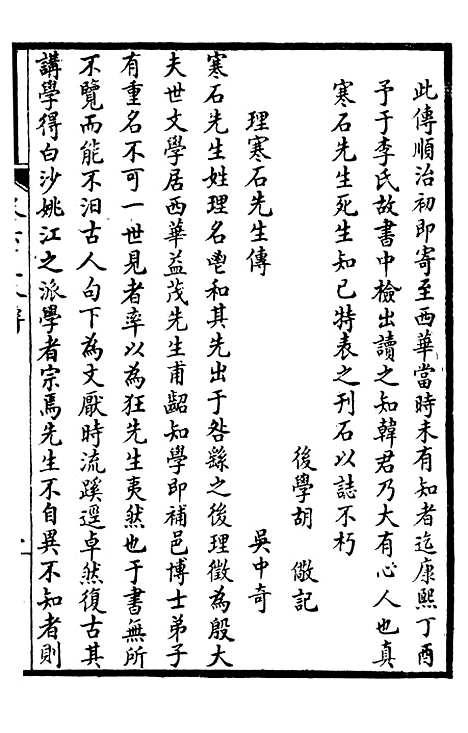 此傳順治初即寄至西華當時未有知者迄康熙丁酉
予于李氏故書中檢出讀之知韓君乃大有心人也真
寒石先生死生知己特表之刊石以誌不朽
後學胡 儆記
理寒石先生傳 吳中奇
寒石先生姓理名鬯和其先出于咎繇之後理徵為殷大
夫世文學居西華益茂先生甫齠知學即補邑博士弟子
有重名不可一世見者率以為狂先生夷然也于書無所
不覽而能不汨古人句下為文厭時流蹊逕卓然復古其
講學得白沙姚江之派學者宗焉先生不自異不知者則